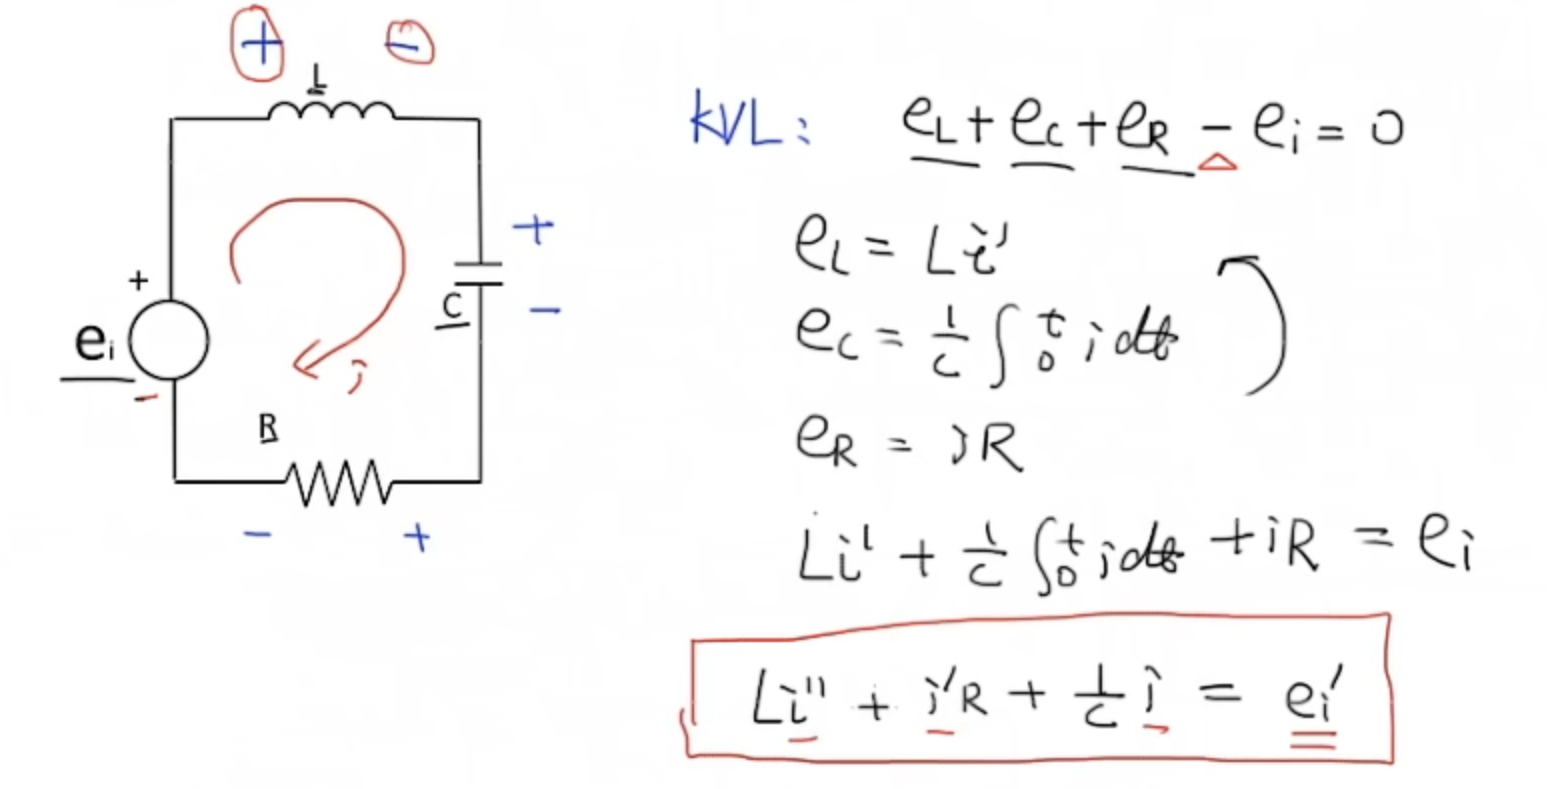 + -
L
+
+
C
-
eᵢ
-
i
R
- +
KVL: e_L + e_C + e_R - eᵢ = 0
e_L = Li'
e_C = 1/C ∫₀ᵗ i dt
e_R = iR
Li' + 1/C ∫₀ᵗ i dt + iR = eᵢ
Li'' + i'R + 1/C i = eᵢ'